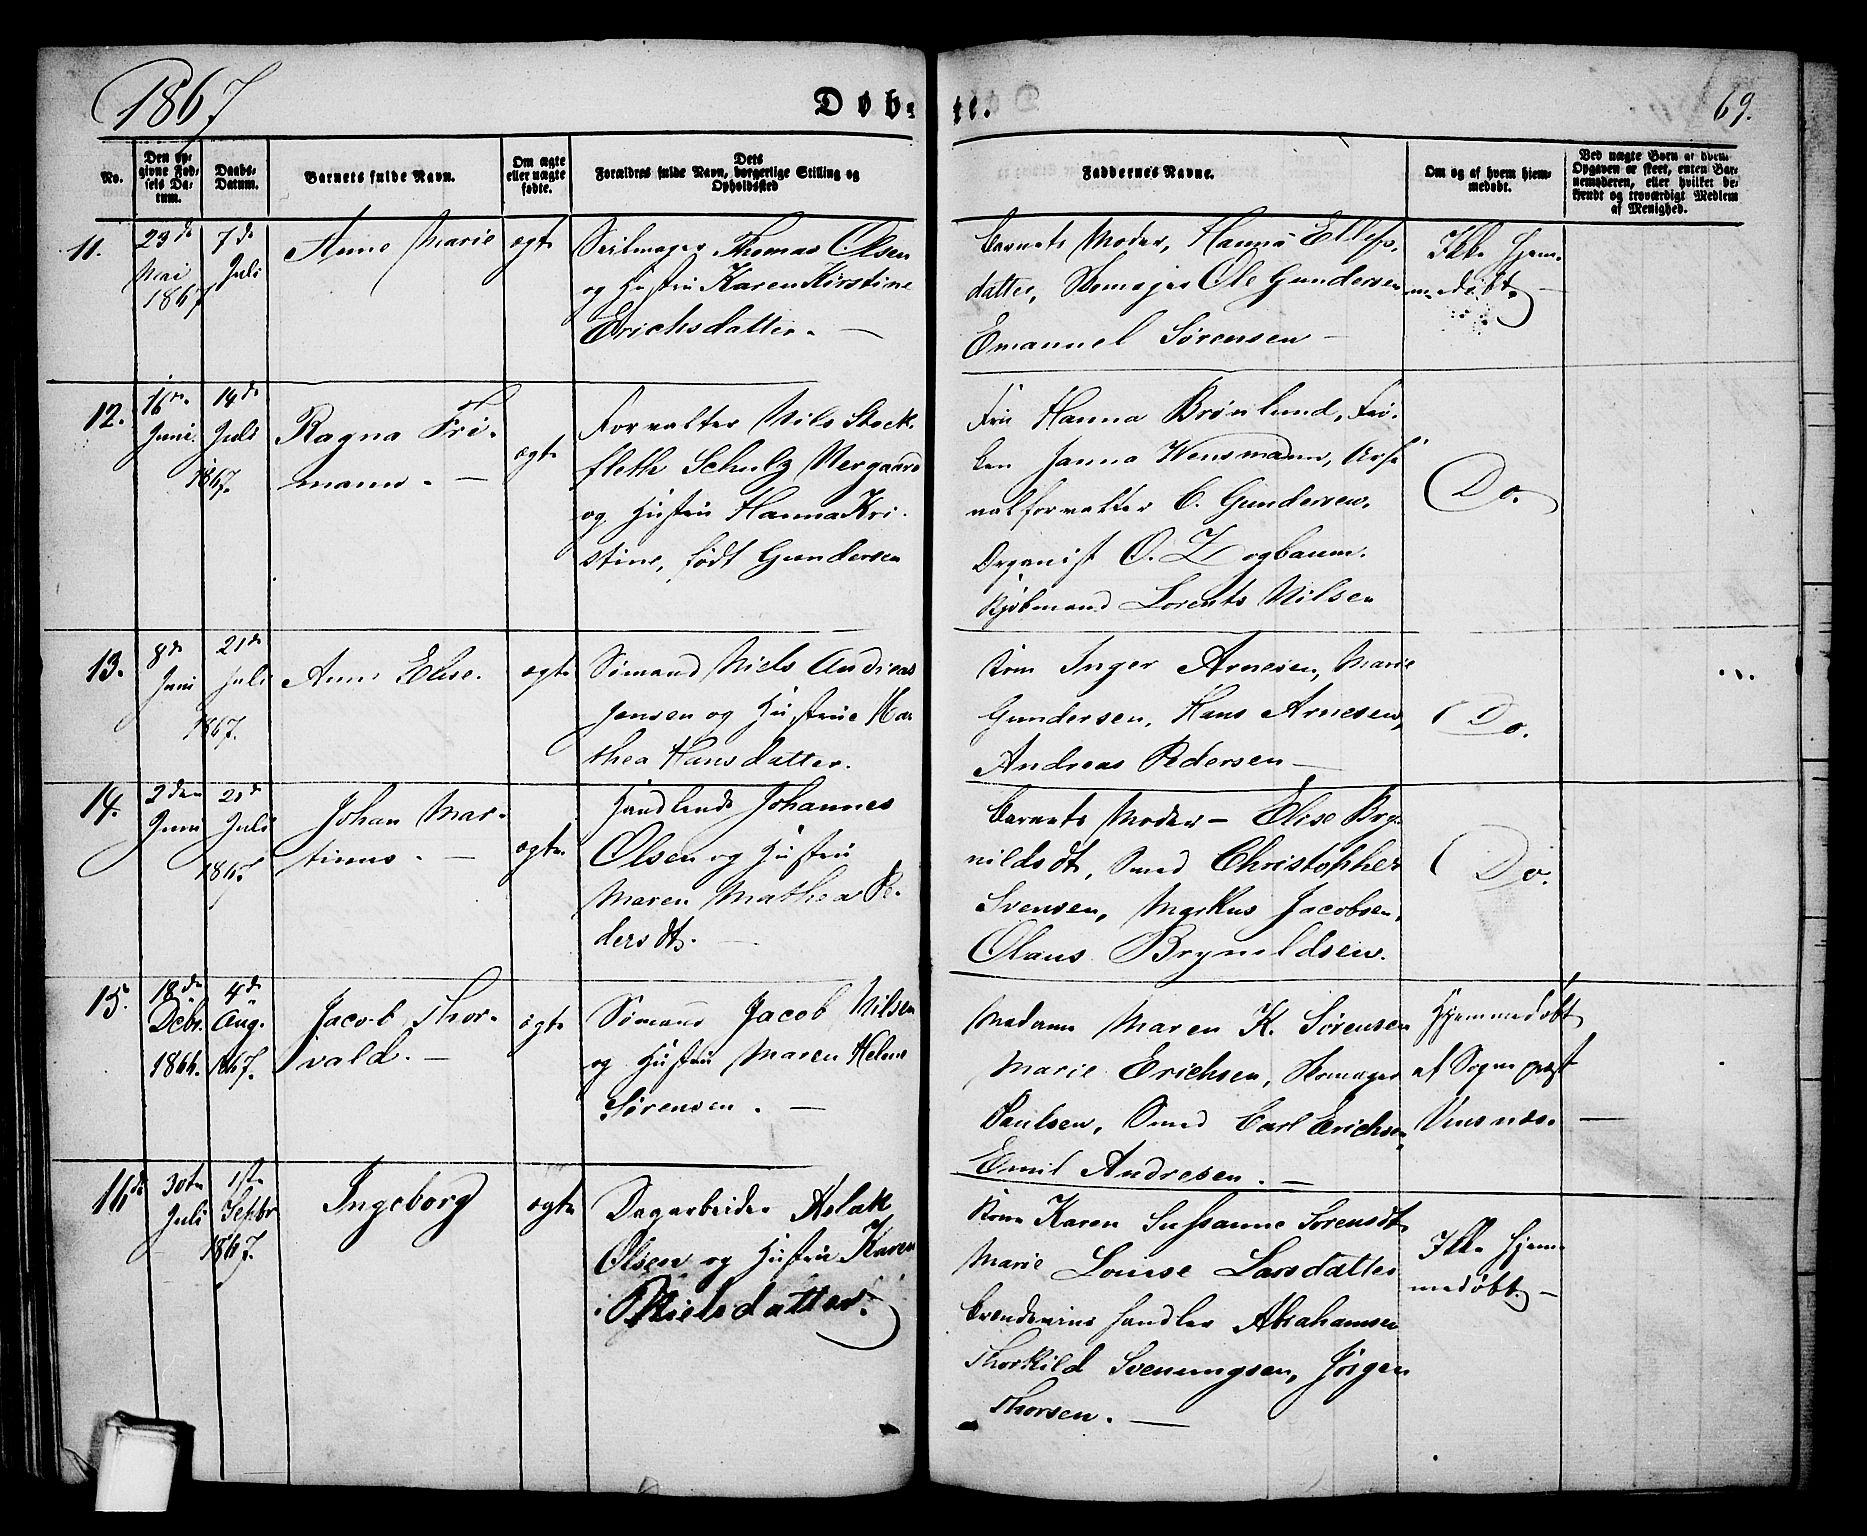 1867
Døb-
te.
69.
No.
Den op-
givne Fød-
sels Da-
tum.
Daabs-
Datum.
Barnets fulde Navn.
Om ægte
eller uægte
fødte.
Dets
Forældres fulde Navn, borgerlige Stilling og
Opholdssted
Faddernes Navne.
Om og af hvem hjem-
medøbt.
Ved uægte Børn af hvem
Opgaven er skeet, enten Bar-
nemoderen, eller hvilket be-
kjendt og troværdigt Medlem
af Menighed.
11.
23de
Mai
1867
7de
Juli
Anne Marie
ægte
Seilmager Thomas Olsen
og Hustru Karen Kirstine
Erichsdatter. —
Barnets Moder, Hanna Ellefs-
datter, Skomager Ole Gundersen
Emanuel Sørensen —
Ikke Hjem-
medøbt. —
12.
16de
Juni.
14de
Juli
1867.
Ragna Fri-
mann. —
ægte
Forvalter Nils Stock-
fleth Schulz Nergaard
og Hustru Hanna Kri-
stine, født Gundersen
Fru Hanna Brønlund, Frø-
ken Janna Wensmann, Arse
nalforvalter C. Gundersen,
Organist O. Zogbaum.
Kjøbmand Lorents Nilsen
Do.
13.
8de
Juni
21de
Juli
1867.
Anne Elise.
ægte
Sømand Niels Andreas
Jensen og Hustrue Mar
thea Hansdatter.
Kone Inger Arnesen, Marie
Gundersen, Hans Arnesen,
Andreas Pedersen —
Do.
14.
2den
Juni
21de
Juli
1867
Johan Mar-
tinus. —
ægte
Handlende Johannes
Olsen og Hustru
Maren Mathea Pe-
dersdt. —
Barnets Moder — Elise Bry-
nildsdt, Smed Christopher
Svensen, Markus Jacobsen,
Olaus Bryneldsen.
Do.
15.
18de
Debr.
1866.
4de
Aug.
1867.
Jacob Thor-
vald. —
ægte
Sømand Jacob Nilsen
og Hustru Maren Helene
Sørensen. —
Madame Maren K. Sørensen
Marie Erichsen, Skomager
Paulsen, Smed Carl Erichsen,
Emil Andresen. —
Hjemmedøbt
af Sognepræst
Vinsnæs. —
16de
30te
Juli
1ste
Septbr
1867.
Ingeborg
ægte
Dagarbeider Aslak
Olsen og Hustru Karen
Nielsdatter.
Kone Karen Sussanne Sørensdt.
Marie Louise Larsdatter
Brendeviinshandler Abrahamsen
Thorkild Svenungsen, Jörgen
Thorsen. —
Ikke Hjem-
medøbt. —